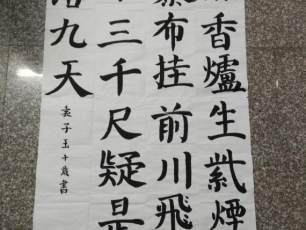 香爐生紫煙
布挂前川飛
三千尺疑是
九天
袁子玉十歲書